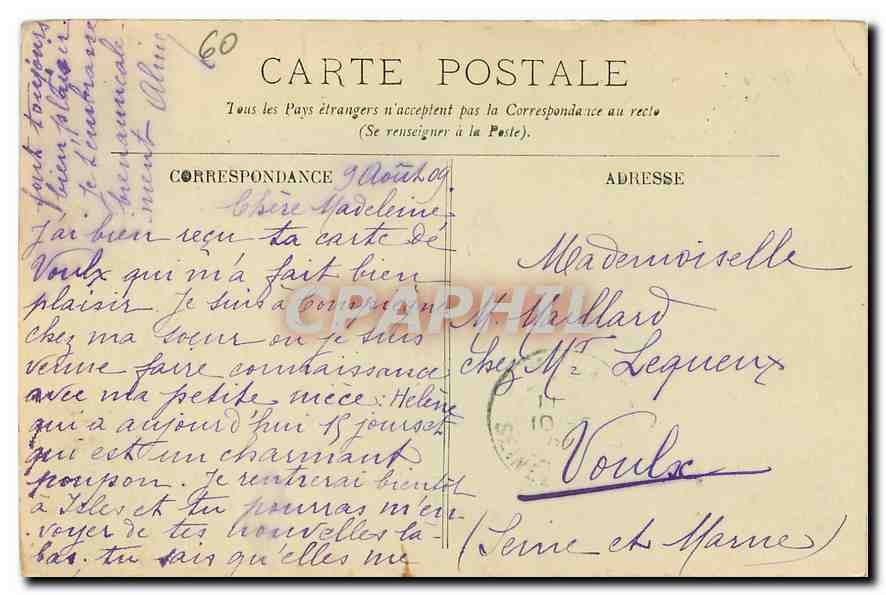 60
CARTE POSTALE
Tous les Pays étrangers n'acceptent pas la Correspondance au recto
(Se renseigner à la Poste).
CORRESPONDANCE
9 Août 09
Chère Madeleine
J'ai bien reçu ta carte de
Voulx qui m'a fait bien
plaisir. Je suis à Compiègne
chez ma soeur ou je suis
venue faire connaissance
avec ma petite nièce : Hélène
qui a aujourd'hui 15 jours et
qui est un charmant
poupon. Je rentrerai bientôt
à Isles et tu pourras m'en-
voyer de tes nouvelles là-
bas, tu sais qu'elles me
font toujours
bien plaisir
Je t'embrasse
bien amicale-
ment
ADRESSE
Mademoiselle
M. Maillard
chez Mr Lequeux
Voulx
(Seine et Marne)
CPAPHIL